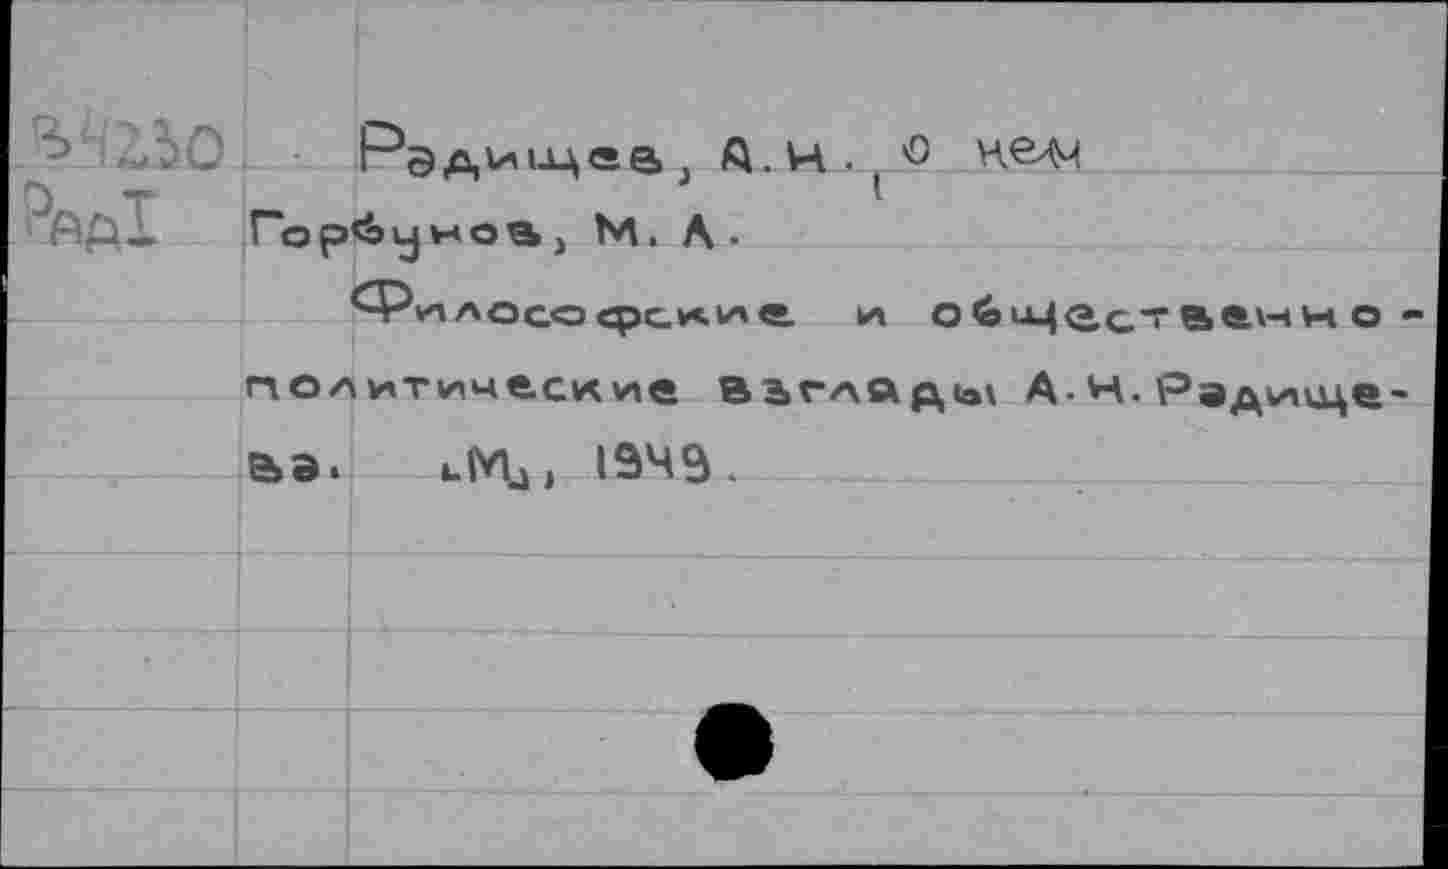 В4230 Радищев, А.Н. , о нем
РАДI Горбунов, М. А.
Философские и общественно-
политические взгляды А.Н. Радище-
ва. [М], 1949.